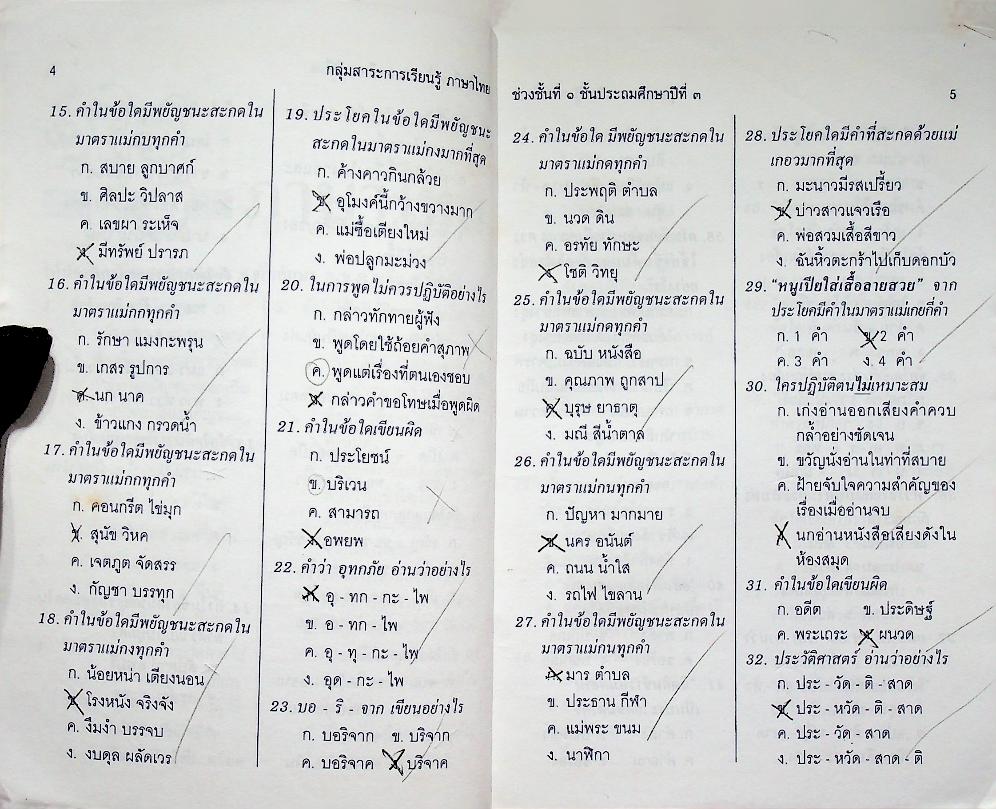 4
กลุ่มสาระการเรียนรู้ ภาษาไทย
15. คำในข้อใดมีพยัญชนะสะกดใน
มาตราแม่กบทุกคำ
ก. สบาย ลูกบาศก์
ข. ศิลปะ วิปลาส
ค. เลขผา ระเห็จ
ง. มีทรัพย์ ปรารภ
16. คำในข้อใดมีพยัญชนะสะกดใน
มาตราแม่กกทุกคำ
ก. รักษา แมงกะพรุน
ข. เกสร รูปการ
ค. นก นาค
ง. ข้าวแกง กรวดน้ำ
17. คำในข้อใดมีพยัญชนะสะกดใน
มาตราแม่กกทุกคำ
ก. คอนกรีต ไข่มุก
ข. สุนัข วิหค
ค. เจตภูต จัดสรร
ง. กัญชา บรรทุก
18. คำในข้อใดมีพยัญชนะสะกดใน
มาตราแม่กงทุกคำ
ก. น้อยหน่า เตียงนอน
ข. โรงหนัง จริงจัง
ค. งึมงำ บรรจบ
ง. งบดุล ผลัดเวร
19. ประโยคในข้อใดมีพยัญชนะ
สะกดในมาตราแม่กงมากที่สุด
ก. ค้างคาวกินกล้วย
ข. อุโมงค์นี้กว้างขวางมาก
ค. แม่ซื้อเตียงใหม่
ง. พ่อปลูกมะม่วง
20. ในการพูดไม่ควรปฏิบัติอย่างไร
ก. กล่าวทักทายผู้ฟัง
ข. พูดโดยใช้ถ้อยคำสุภาพ
ค. พูดแต่เรื่องที่ตนเองชอบ
ง. กล่าวคำขอโทษเมื่อพูดผิด
21. คำในข้อใดเขียนผิด
ก. ประโยชน์
ข. บริเวน
ค. สามารถ
ง. อพยพ
22. คำว่า อุทกภัย อ่านว่าอย่างไร
ก. อุ - ทก - กะ - ไพ
ข. อ - ทก - ไพ
ค. อุ - ทุ - กะ - ไพ
ง. อุด - กะ - ไพ
23. บอ - ริ - จาก เขียนอย่างไร
ก. บอริจาก ข. บริจาก
ค. บอริจาค ง. บริจาค
ช่วงชั้นที่ ๑ ชั้นประถมศึกษาปีที่ ๓
5
24. คำในข้อใด มีพยัญชนะสะกดใน
มาตราแม่กดทุกคำ
ก. ประพฤติ ตำบล
ข. นวด ดิน
ค. อรทัย ทักษะ
ง. โชติ วิทยุ
25. คำในข้อใดมีพยัญชนะสะกดใน
มาตราแม่กดทุกคำ
ก. ฉบับ หนังสือ
ข. คุณภาพ ถูกสาป
ค. บุรุษ ยาธาตุ
ง. มณี สีน้ำตาล
26. คำในข้อใดมีพยัญชนะสะกดใน
มาตราแม่กนทุกคำ
ก. ปัญหา มากมาย
ข. นคร อนันต์
ค. ถนน น้ำใส
ง. รถไฟ ไขลาน
27. คำในข้อใดมีพยัญชนะสะกดใน
มาตราแม่กนทุกคำ
ก. มาร ตำบล
ข. ประธาน กีฬา
ค. แม่พระ ขนม
ง. นาฬิกา
28. ประโยคใดมีคำที่สะกดด้วยแม่
เกอวมากที่สุด
ก. มะนาวมีรสเปรี้ยว
ข. บ่าวสาวแจวเรือ
ค. พ่อสวมเสื้อสีขาว
ง. ฉันหิ้วตะกร้าไปเก็บดอกบัว
29. “หนูเปียใส่เสื้อลายสวย” จาก
ประโยคมีคำในมาตราแม่เกยกี่คำ
ก. 1 คำ ข. 2 คำ
ค. 3 คำ ง. 4 คำ
30. ใครปฏิบัติตนไม่เหมาะสม
ก. เก่งอ่านออกเสียงคำควบ
กล้ำอย่างชัดเจน
ข. ขวัญนั่งอ่านในท่าที่สบาย
ค. ฝ้ายจับใจความสำคัญของ
เรื่องเมื่ออ่านจบ
ง. นกอ่านหนังสือเสียงดังใน
ห้องสมุด
31. คำในข้อใดเขียนผิด
ก. อดีต ข. ประดิษฐ์
ค. พระเถระ ง. ผนวด
32. ประวัติศาสตร์ อ่านว่าอย่างไร
ก. ประ - วัด - ติ - สาด
ข. ประ - หวัด - ติ - สาด
ค. ประ - วัด - สาด
ง. ประ - หวัด - สาด - ติ